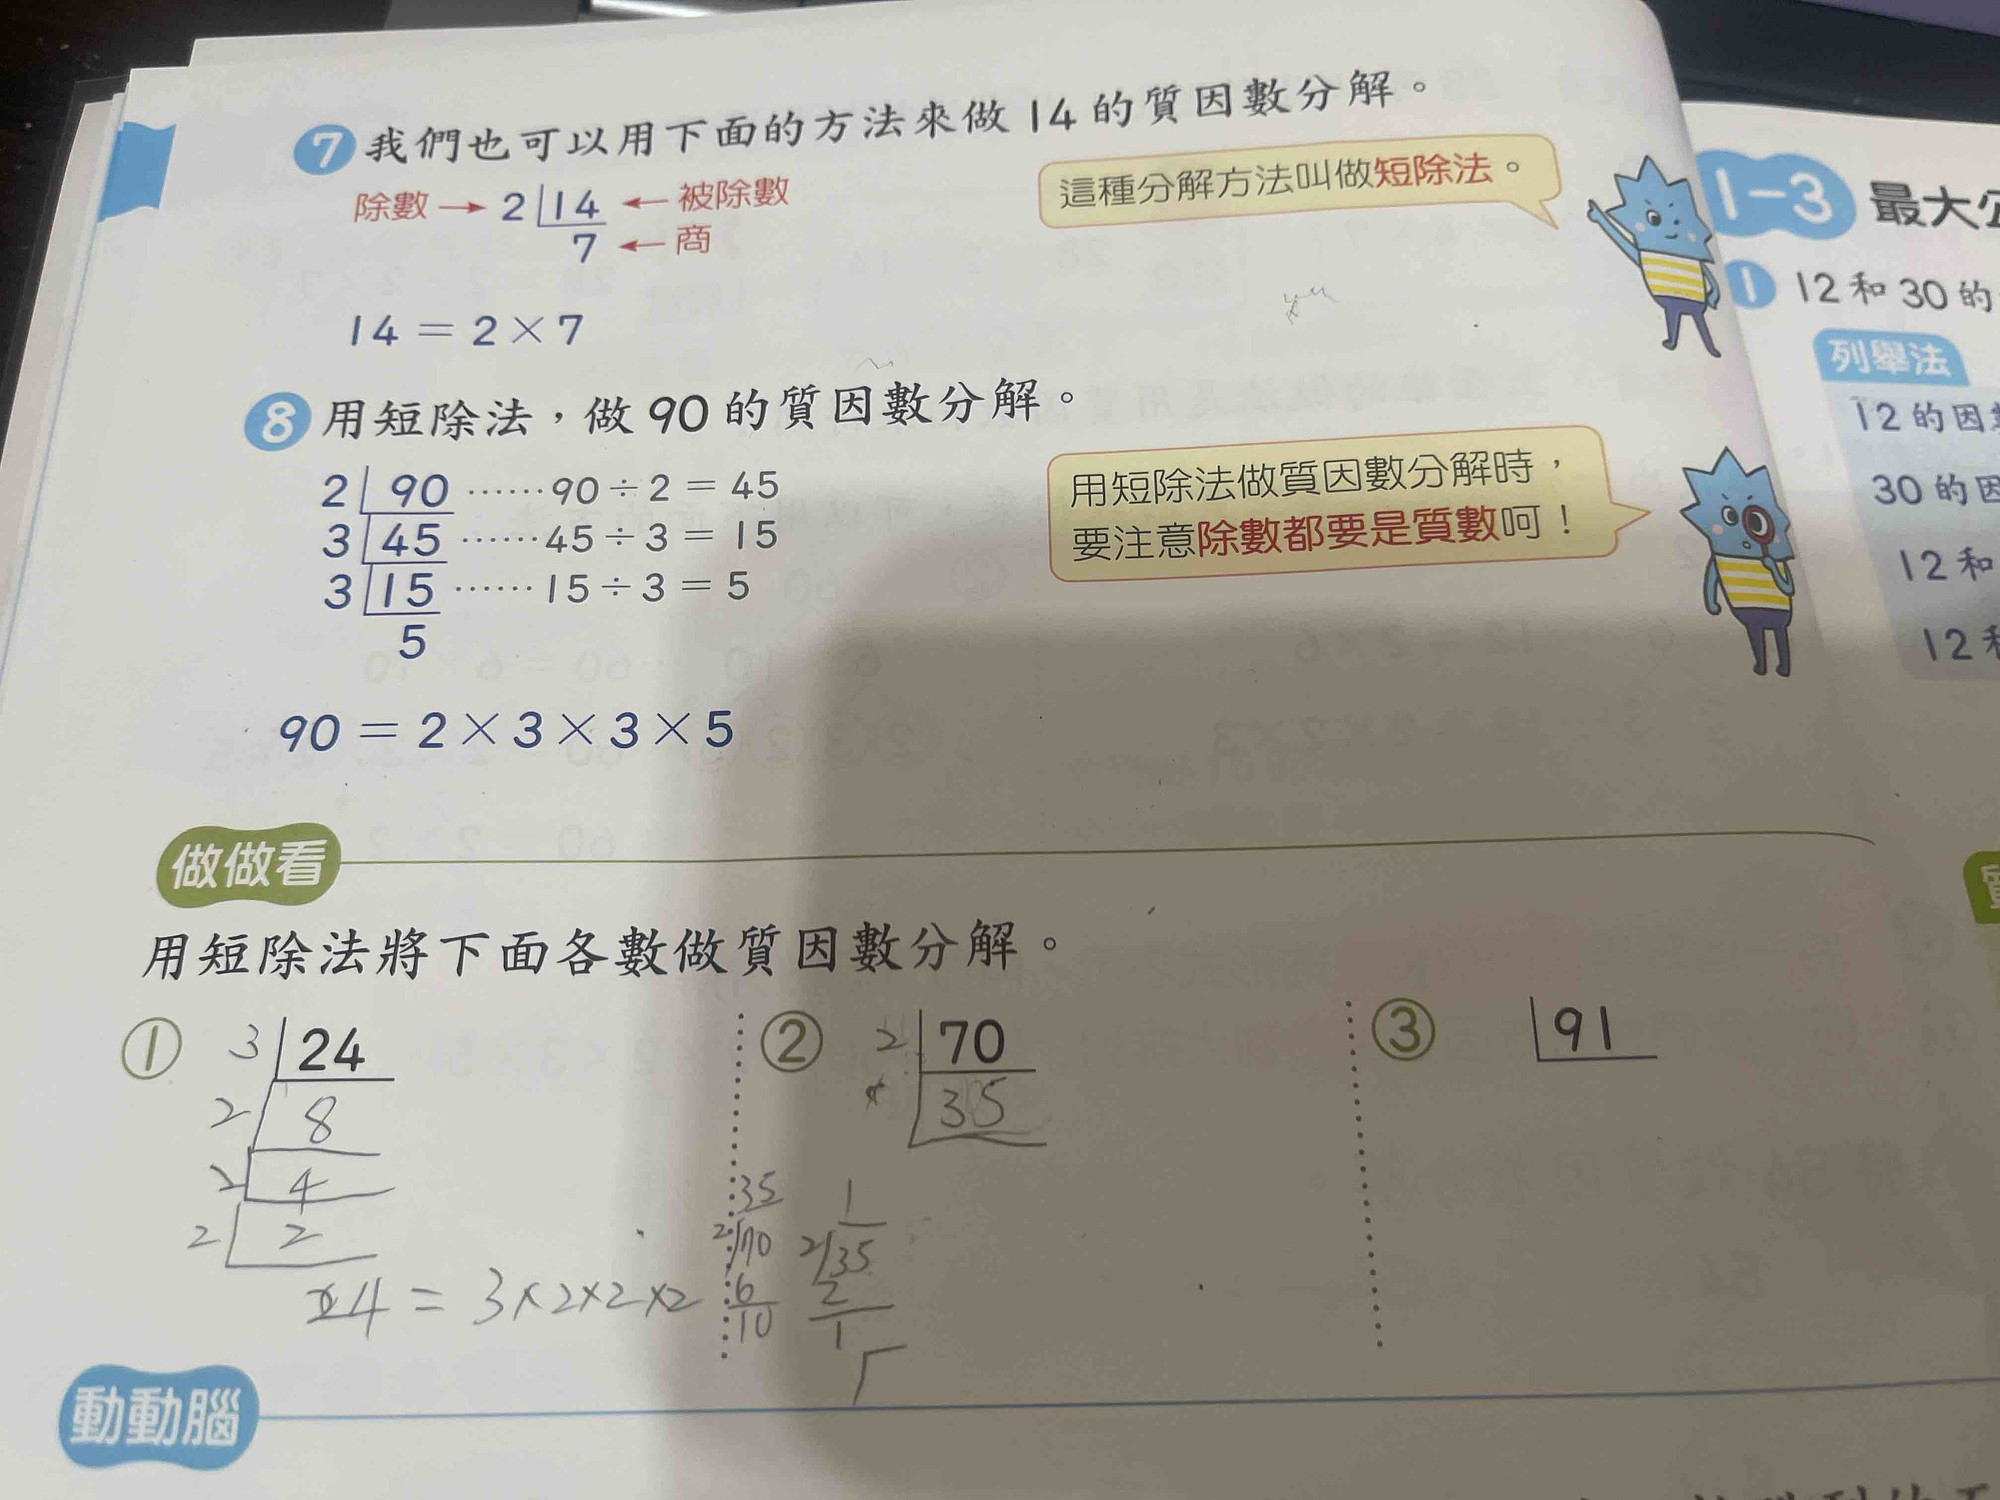 7 我們也可以用下面的方法來做 14 的質因數分解。
除數 → 2 14 ← 被除數
7 ← 商
這種分解方法叫做短除法。
14 = 2 × 7
8 用短除法，做 90 的質因數分解。
2 90 ……90 ÷ 2 = 45
3 45 ……45 ÷ 3 = 15
3 15 ……15 ÷ 3 = 5
5
用短除法做質因數分解時，
要注意除數都要是質數呵！
90 = 2 × 3 × 3 × 5
做做看
用短除法將下面各數做質因數分解。
① 3 24
2 8
2 4
2 2
24 = 3×2×2×2
② 2 70
35
35
2 70
6
10
1
2 35
2
1
③ 91
動動腦
1-3 最大
1 12 和 30 的
列舉法
12 的因
30 的因
12 和
12